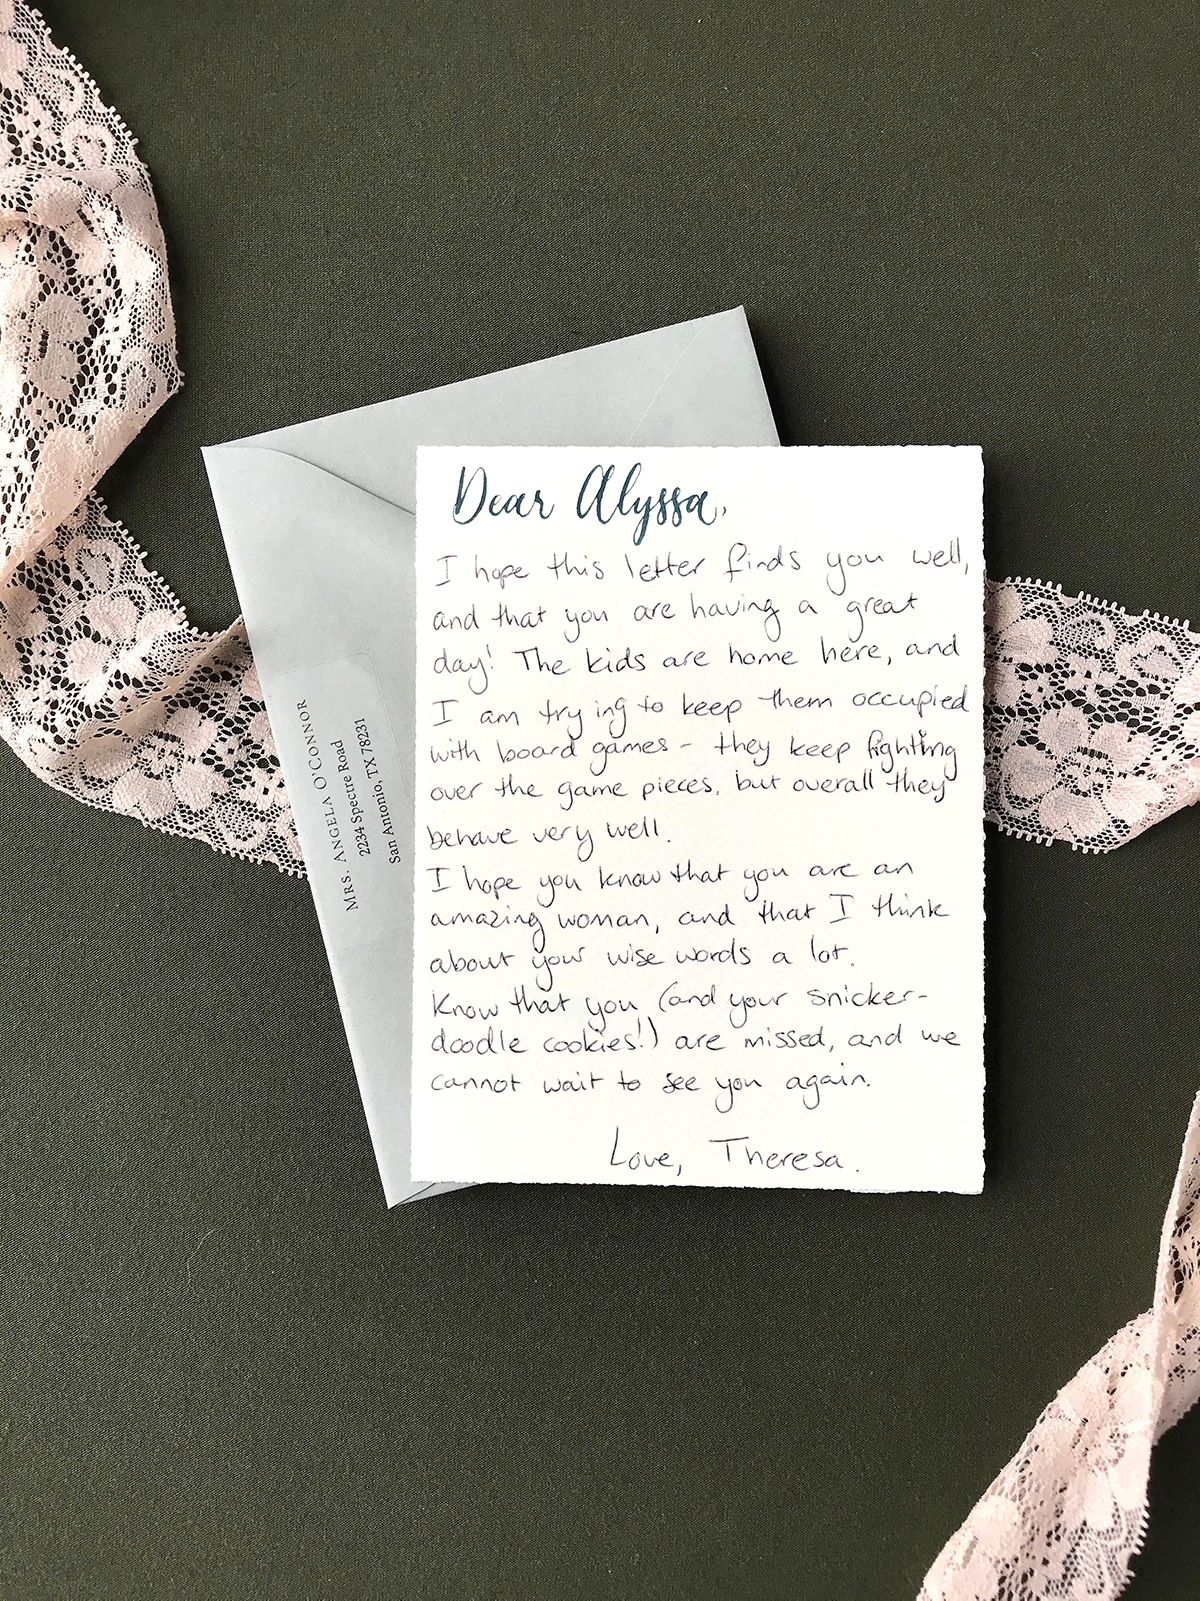 Dear Alyssa,
I hope this letter finds you well,
and that you are having a great
day! The kids are home here, and
I am trying to keep them occupied
with board games - they keep fighting
over the game pieces, but overall they
behave very well.
I hope you know that you are an
amazing woman, and that I think
about your wise words a lot.
Know that you (and your snicker-
doodle cookies!) are missed, and we
cannot wait to see you again.
Love, Theresa.
MRS. ANGELA O'CONNOR
2234 Spectre Road
San Antonio, TX 78231